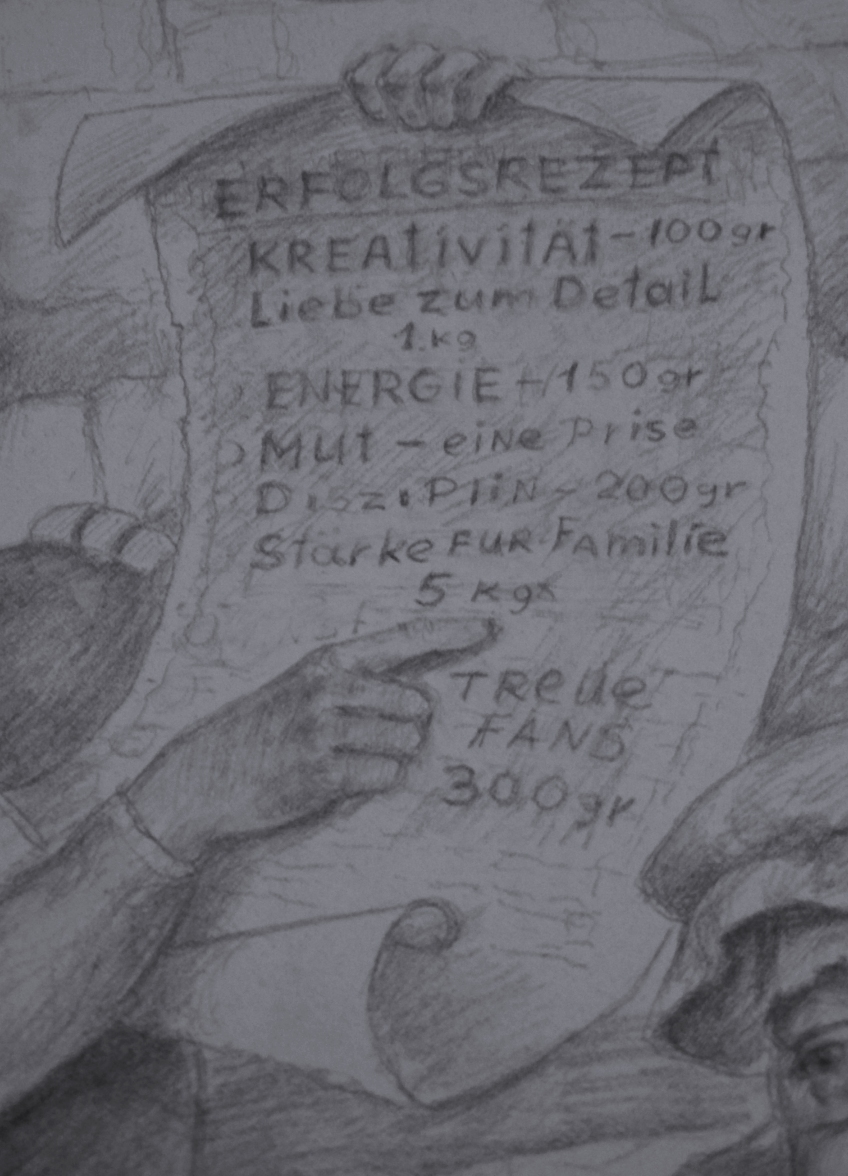 ERFOLGSREZEPT
KREAtivitÄt - 100gr
Liebe zum DetaiL
1.kg
ENERGiE - 150gr
MUt - eiNe Prise
DisziPliN - 200gr
Stärke FUR FAmilie
5 kg
TReue
FANS
300gr